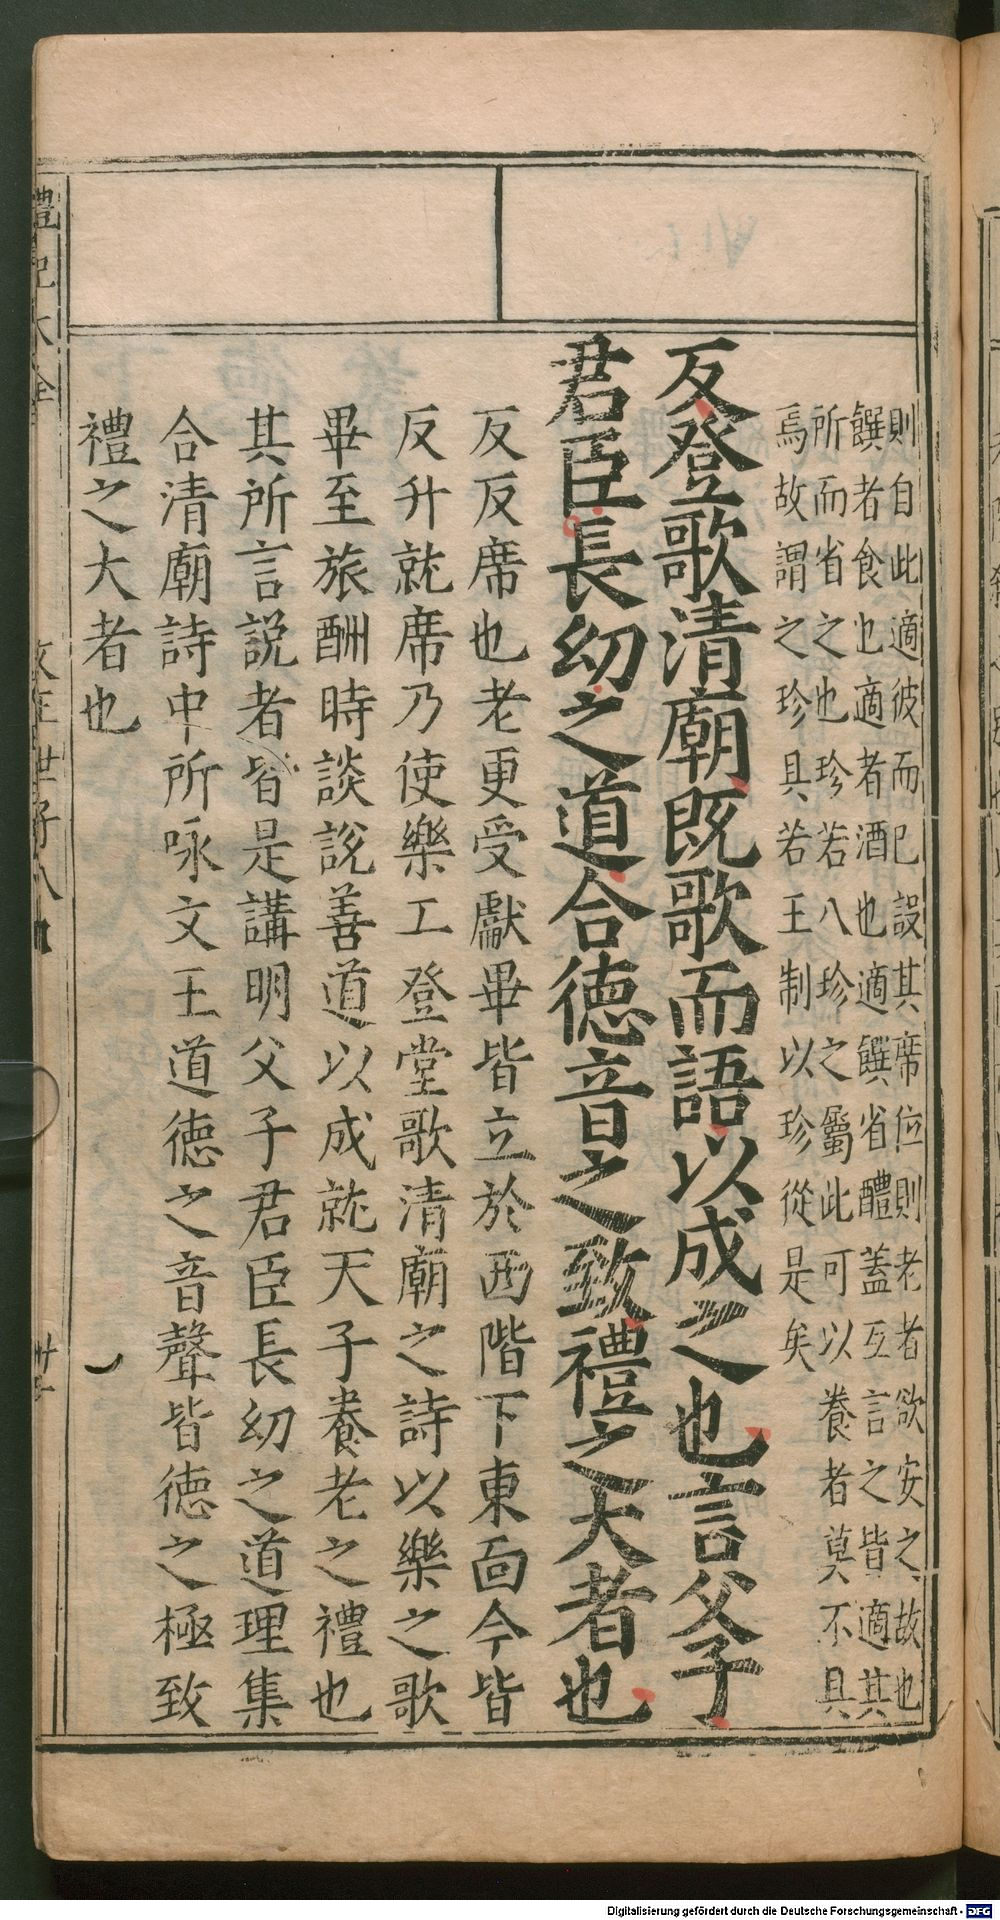 則自此適彼而已設其席位則老者欲安之故也
饌者食也適者酒也適饌省醴蓋互言之皆適其
所而省之也珍若八珍之屬此可以養者莫不具
焉故謂之珍具若王制以珍從是矣
反登歌清廟既歌而語以成之也言父子
君臣長幼之道合德音之致禮之大者也
反反席也老更受獻畢皆立於西階下東面今皆
反升就席乃使樂工登堂歌清廟之詩以樂之歌
畢至旅酬時談說善道以成就天子養老之禮也
其所言説者皆是講明父子君臣長幼之道理集
合清廟詩中所咏文王道德之音聲皆德之極致
禮之大者也
禮記大全
文王世子八
卅
Digitalisierung gefördert durch die Deutsche Forschungsgemeinschaft - DFG